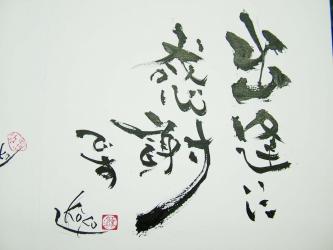 出逢いに
感謝
KoKo